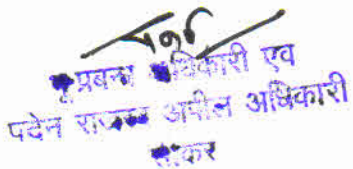 भू प्रबन्ध अधिकारी एव
पदेन राजस्व अपील अधिकारी
सीकर